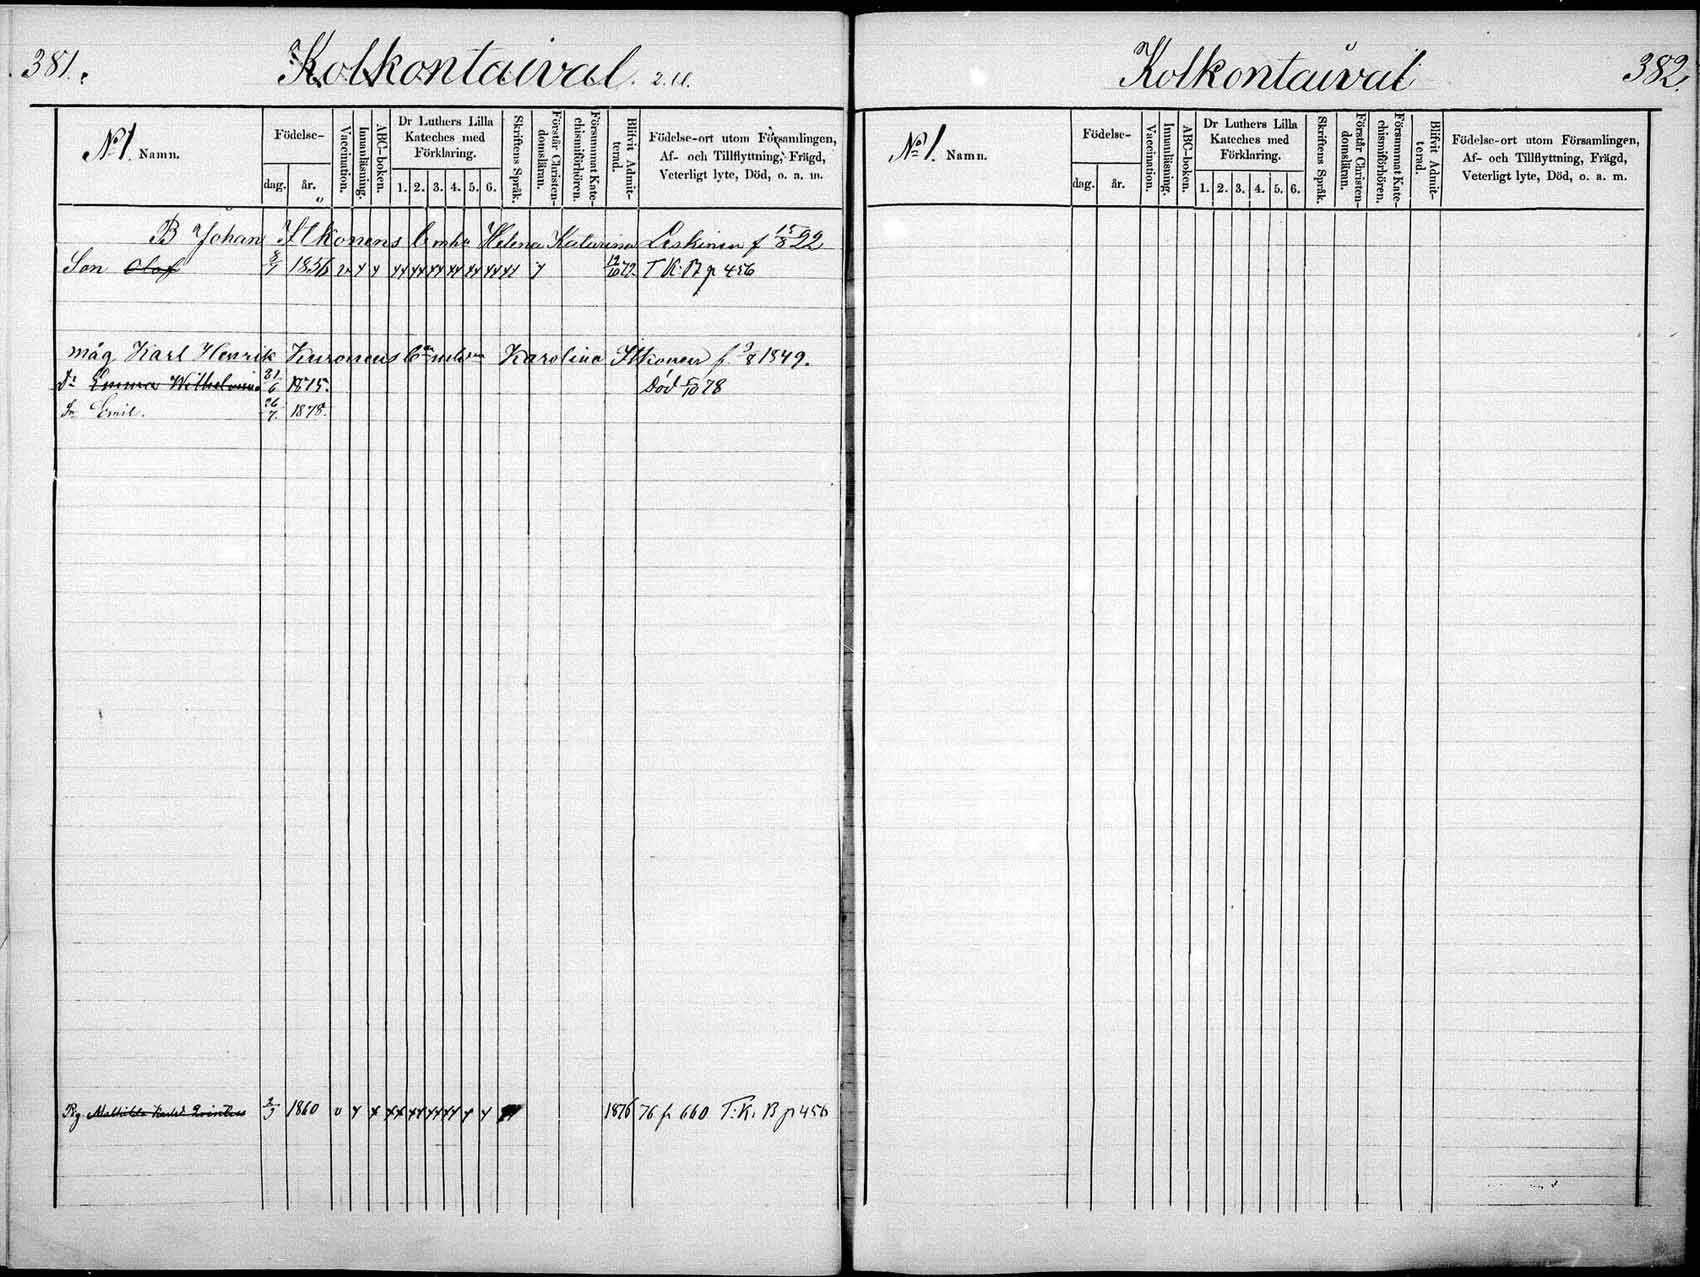 381.
Kolkontaival. 2. ll.
No 1. Namn.
Födelse-
dag. år.
Vaccination.
Innanläsning.
ABC-boken.
Dr Luthers Lilla Kateches med Förklaring.
1. 2. 3. 4. 5. 6.
Skriftens Språk.
Förstår Christendomsläran.
Försummat Katechismiförhören.
Blifvit Admitterad.
Födelse-ort utom Församlingen,
Af- och Tillflyttning, Frägd,
Veterligt lyte, Död, o. a. m.
B Johan Itkonens Enka Helena Katarina Leskinen f 15/8 22
Son Olof 8/7 1856 v x x xx xx xx xx xx xx xx x 12/10 72. T K: B p 456
måg Karl Henrik Kuronens Karolina Itkonen f. 3/8 1849.
Dr Emma Wilhelmina 31/6 1875. Död 5/10 78
Sn Emil. 26/7. 1878.
Pg Mathilda 3/5 1860 v x x xx xx xx xx x x 1876 76 p. 660 T: K: B p 456
Kolkontaival
382.
No 1. Namn.
Födelse-
dag. år.
Vaccination.
Innanläsning.
ABC-boken.
Dr Luthers Lilla Kateches med Förklaring.
1. 2. 3. 4. 5. 6.
Skriftens Språk.
Förstår Christendomsläran.
Försummat Katechismiförhören.
Blifvit Admitterad.
Födelse-ort utom Församlingen,
Af- och Tillflyttning, Frägd,
Veterligt lyte, Död, o. a. m.